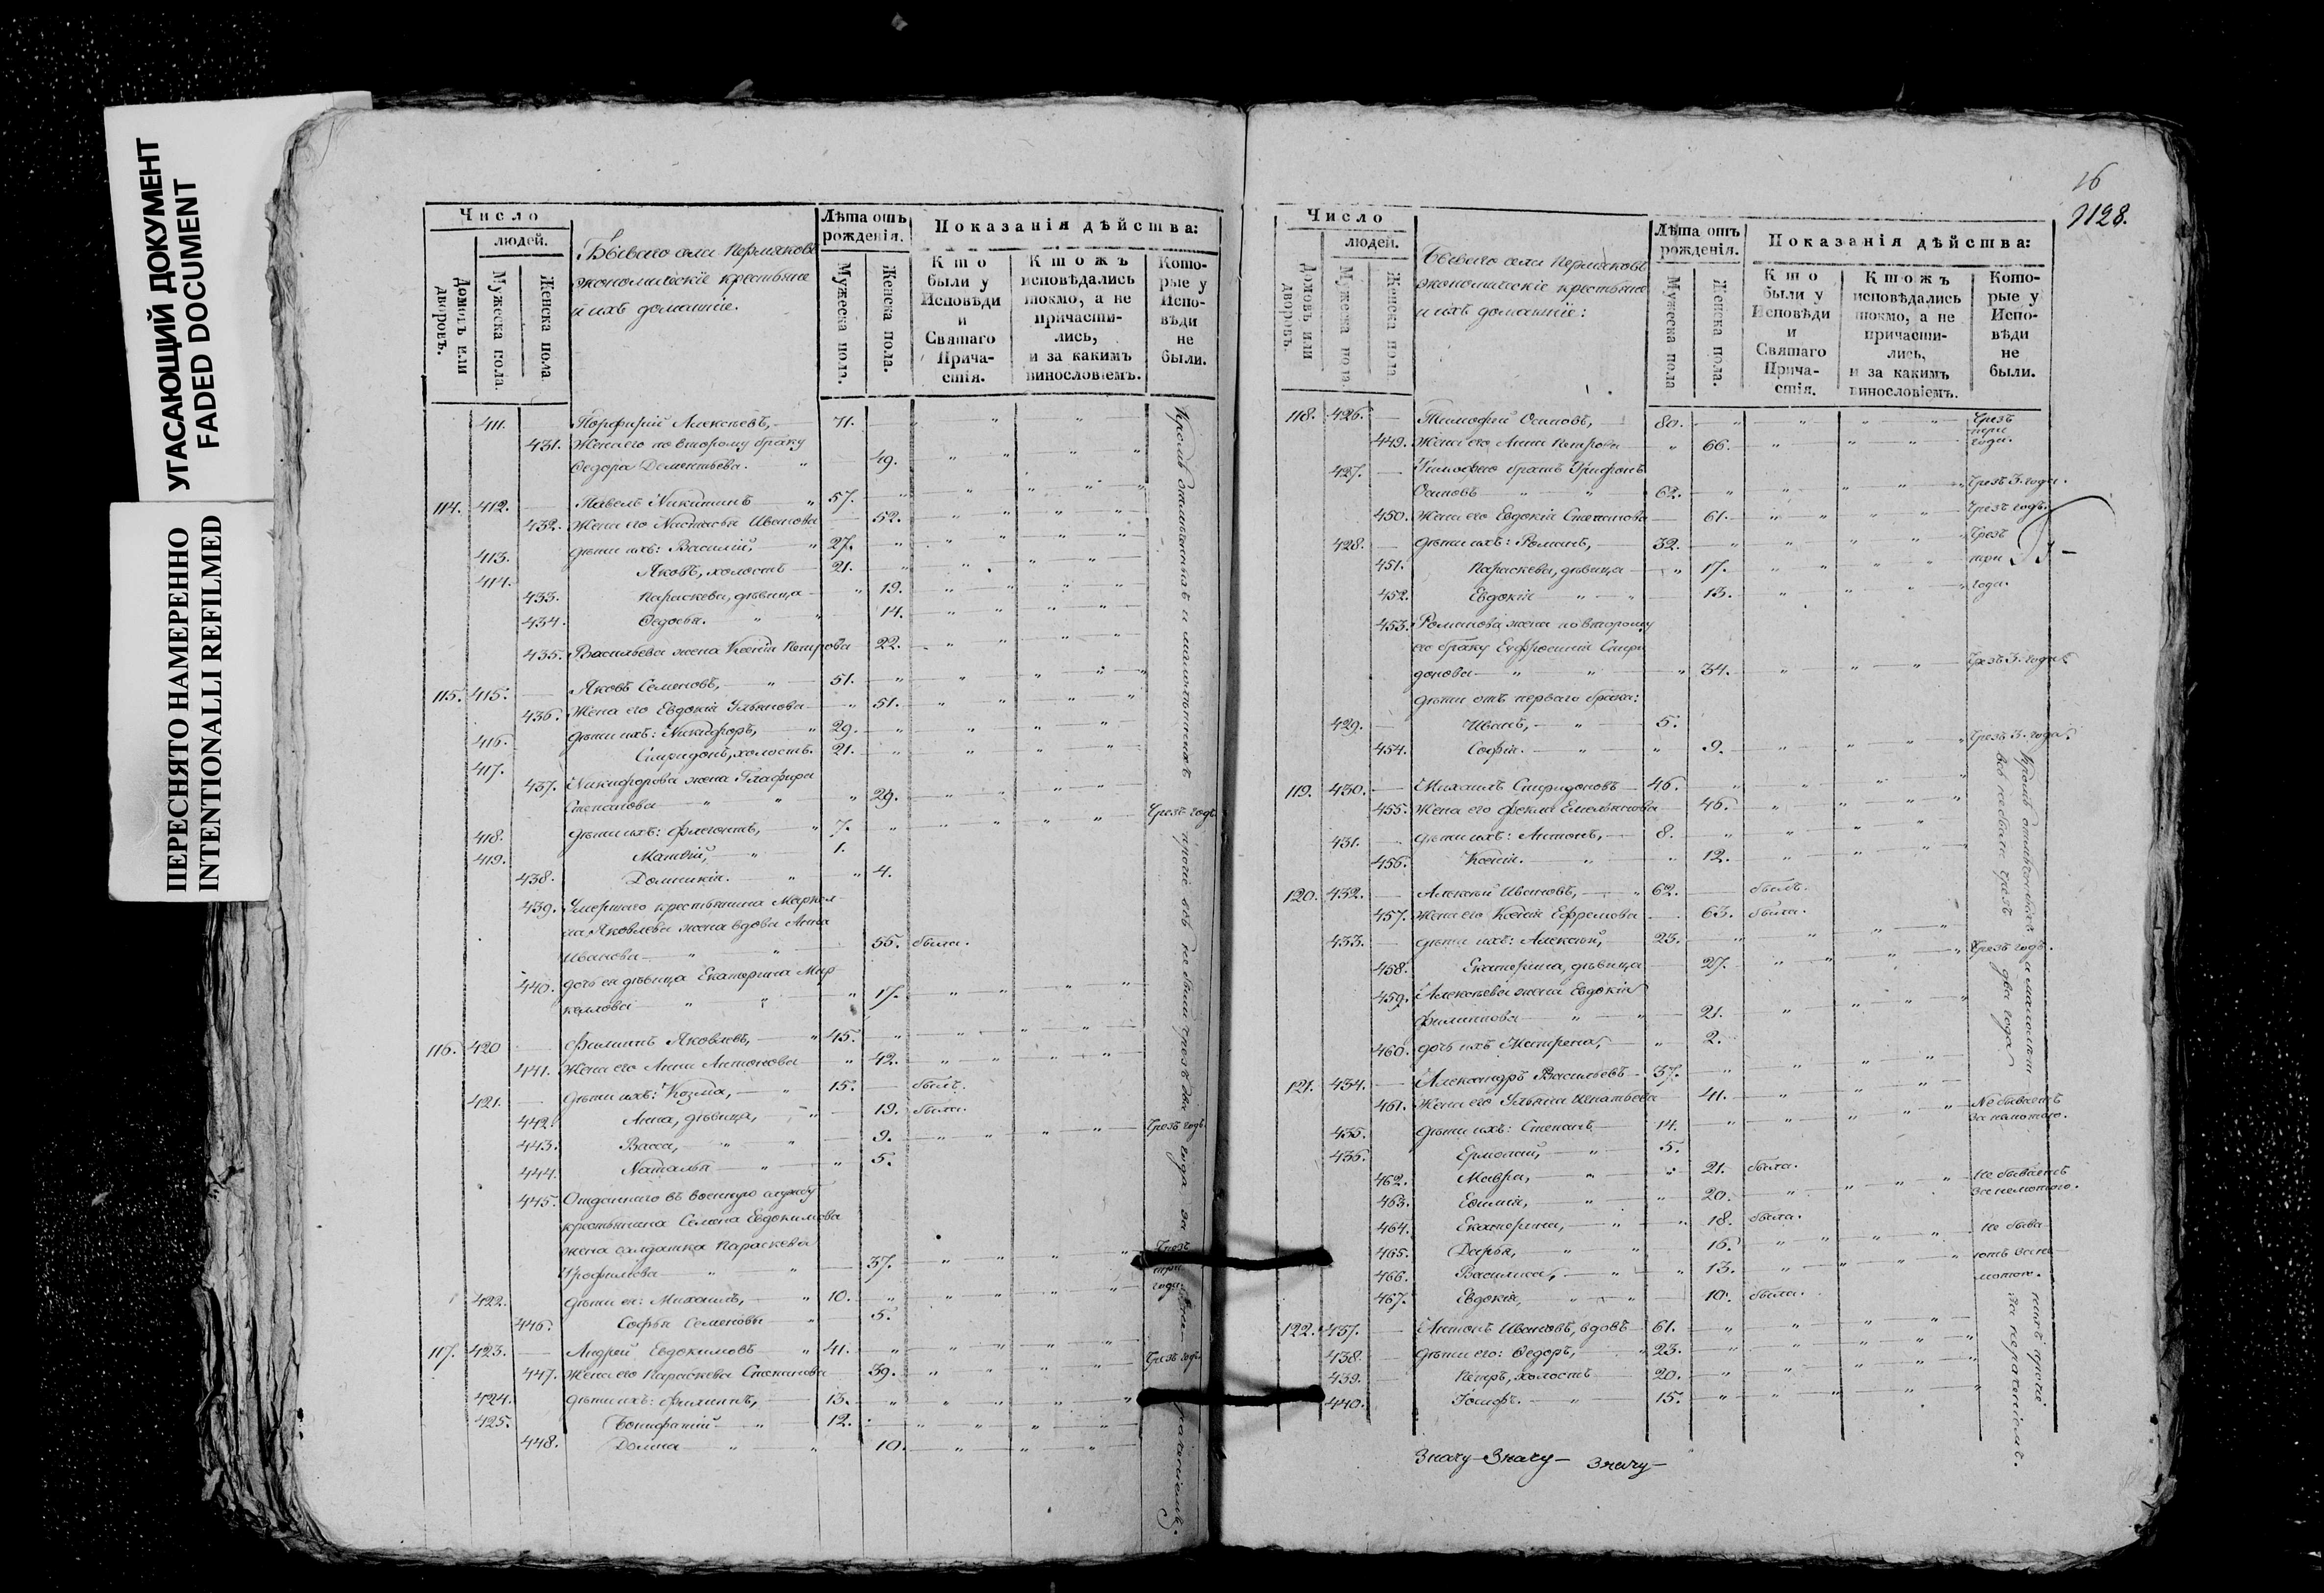 УГАСАЮЩИЙ ДОКУМЕНТ
FADED DOCUMENT
ПЕРЕСНЯТО НАМЕРЕННО
INTENTIONALLI REFILMED
Число
людей.
Домовъ или дворовъ.
Мужеска пола.
Женска пола.
Бывшаго села Пермяковъ
экономическіе крестьяне
и ихъ домашніе.
Лѣта отъ рожденія.
Мужеска пола.
Женска пола.
Показанія дѣйства:
Кто были у Исповѣди и Святаго Прича-стія.
Ктожъ исповѣдались токмо, а не причасти-лись, и за какимъ винословіемъ.
Кото-рые у Испо-вѣди не были.
411. Порфирій Алексѣевъ, 71.
431. Жена его по второму браку
Ѳедора Дементьева. 49.
114. 412. Павелъ Никитинъ 57.
432. Жена его Настасья Иванова 52.
413. дѣти ихъ: Василій, 27.
414. Яковъ, холостъ 21.
433. Параскева, дѣвица 19.
434. Ѳедосья. 14.
435. Васильева жена Ксенія Петрова 22.
115. 415. Яковъ Семеновъ, 51.
436. Жена его Евдокія Ульянова 51.
416. дѣти ихъ: Никифоръ, 29.
417. Спиридонъ, холостъ. 21.
437. Никифорова жена Глафира
Степанова 29.
418. дѣти ихъ: Флегонтъ, 7. Чрезъ годъ
419. Матвій, 1.
438. Домникія. 4.
439. Умершаго крестьянина Маркел-
ла Яковлева жена вдова Анна
Иванова 55. была.
440. дочь ея дѣвица Екатерина Мар-
келлова 17.
116. 420 Филиппъ Яковлевъ, 45.
441. Жена его Анна Антонова 42.
421. дѣти ихъ: Козма, 15. былъ.
442. Анна, дѣвица, 19. была.
443. Васса, 9. Чрезъ годъ.
444. Наталья 5.
445. Отданнаго въ военную службу
крестьянина Семена Евдокимова
жена солдатка Параскева
Трофимова 37. Чрезъ три года.
422. дѣти ея: Михаилъ, 10.
446. Софья Семеновы 5.
117. 423. Андрей Евдокимовъ 41. Чрезъ годъ.
447. Жена его Параскева Степанова 39.
424. дѣти ихъ: Филиппъ, 13.
425. Бонифатій 12.
448. Домна 10.
Кромѣ отмѣченныхъ и малолѣтнихъ прочіе всѣ не были чрезъ два года за
16
1128.
Число
людей.
Домовъ или дворовъ.
Мужеска пола.
Женска пола.
Бывшаго села Пермяковъ
экономическіе крестьяне
и ихъ домашніе:
Лѣта отъ рожденія.
Мужеска пола
Женска пола.
Показанія дѣйства:
Кто были у Исповѣди и Святаго Прича-стія.
Ктожъ исповѣдались токмо, а не причасти-лись, и за какимъ винословіемъ.
Кото-рые у Испо-вѣди не были.
118. 426. Тимофей Осиповъ, 80. Чрезъ три года.
449. Жена его Анна Петрова 66.
427. Тимофею братъ Трифонъ
Осиповъ 62. Чрезъ 3. года.
450. Жена его Евдокія Степанова 61. Чрезъ годъ.
428. дѣти ихъ: Романъ, 32. Чрезъ
451. Параскева, дѣвица 17. три
452. Евдокія 13. года.
453. Романова жена по второму
его браку Евфросинія Спири
донова 34. Чрезъ 3. года.
дѣти отъ перваго брака:
429. Иванъ, 5.
454. Софія. 9. Чрезъ 3. года.
119. 430. Михаилъ Спиридоновъ 46.
455. Жена его Фекла Емельянова 46.
431. дѣти ихъ: Антонъ, 8.
456. Ксенія. 12.
120. 432. Алексѣй Ивановъ, 62. былъ.
457. Жена его Ксенія Ефремова 63. была.
433. дѣти ихъ: Алексѣй, 23.
458. Екатерина, дѣвица 27. Чрезъ годъ.
459. Алексѣева жена Евдокія
Филиппова 21.
460. дочь ихъ Матрена, 2.
121. 434. Александръ Васильевъ 37.
461. Жена его Ульяна Игнатьева 41.
435. дѣти ихъ: Степанъ 14. Не бываетъ за немотою.
436. Ермолай, 5.
462. Мавра, 21. была.
463. Евимія, 20. Не бываетъ за немотою.
464. Екатерина, 18. была.
465. Дарья, 16. не быва
466. Василиса, 13. ютъ за не
467. Евдокія, 10. была. мотою.
122. 437. Антонъ Ивановъ, вдовъ 61.
438. дѣти его: Ѳедоръ, 23.
439. Петръ, холостъ 20.
440. Іосифъ. 15.
Кромѣ отмѣченныхъ и малолѣтнихъ прочіе
всѣ не были чрезъ два года за нерачениемъ.
Значу Значу Значу